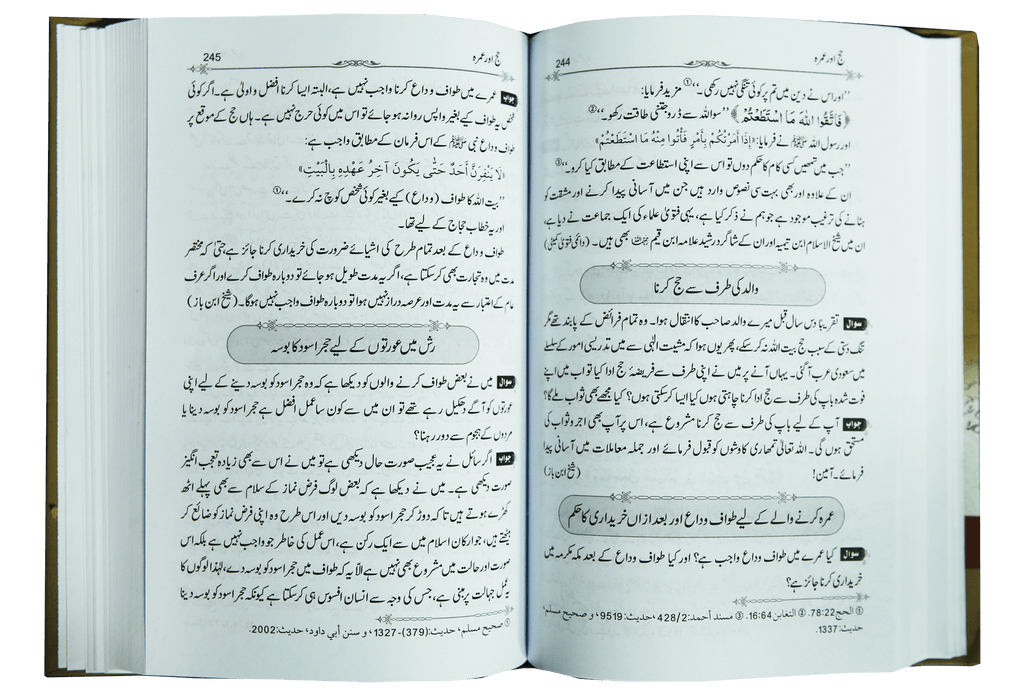 حج اور عمرہ
244
’’اور اس نے دین میں تم پر کوئی تنگی نہیں رکھی۔‘‘① مزید فرمایا:
﴿فَاتَّقُوا اللّٰهَ مَا اسْتَطَعْتُمْ﴾ ’’سو اللہ سے ڈرو جتنی طاقت رکھو۔‘‘②
اور رسول اللہ ﷺ نے فرمایا: «إِذَا أَمَرْتُكُمْ بِأَمْرٍ فَأْتُوا مِنْهُ مَا اسْتَطَعْتُمْ»
’’جب میں تمھیں کسی کام کا حکم دوں تو اس سے اپنی استطاعت کے مطابق کیا کرو۔‘‘③
ان کے علاوہ اور بھی بہت سی نصوص وارد ہیں جن میں آسانی پیدا کرنے اور مشقت کو
ہٹانے کی ترغیب موجود ہے جو ہم نے ذکر کیا ہے، یہی فتویٰ علماء کی ایک جماعت نے دیا ہے،
ان میں شیخ الاسلام ابن تیمیہ اور ان کے شاگرد رشید علامہ ابن قیم بھی ہیں۔ (دائمی فتویٰ کمیٹی)
والد کی طرف سے حج کرنا
سوال تقریباً دس سال قبل میرے والد صاحب کا انتقال ہوا۔ وہ تمام فرائض کے پابند تھے مگر
تنگ دستی کے سبب حج بیت اللہ نہ کر سکے، پھر یوں ہوا کہ مشیت الٰہی سے میں تدریسی امور کے سلسلے
میں سعودی عرب آ گئی۔ یہاں آنے پر میں نے اپنی طرف سے فریضۂ حج ادا کیا تو اب میں اپنے
فوت شدہ باپ کی طرف سے حج ادا کرنا چاہتی ہوں کیا ایسا کر سکتی ہوں؟ کیا مجھے بھی ثواب ملے گا؟
جواب آپ کے لیے باپ کی طرف سے حج کرنا مشروع ہے، اس پر آپ بھی اجر و ثواب کی
مستحق ہوں گی۔ اللہ تعالیٰ تمھاری کاوشوں کو قبول فرمائے اور جملہ معاملات میں آسانی پیدا
فرمائے۔ آمین! (شیخ ابن باز)
عمرہ کرنے والے کے لیے طواف وداع اور بعد ازاں خریداری کا حکم
سوال کیا عمرے میں طواف وداع واجب ہے؟ اور کیا طواف وداع کے بعد مکہ مکرمہ میں
خریداری کرنا جائز ہے؟
① الحج 78:22. ② التغابن 16:64. ③ مسند احمد: 428/2، حدیث: 9519، و صحیح مسلم،
حدیث: 1337.
حج اور عمرہ
245
جواب عمرے میں طواف وداع کرنا واجب نہیں ہے، البتہ ایسا کرنا افضل و اولیٰ ہے۔ اگر کوئی
شخص یہ طواف کیے بغیر واپس روانہ ہو جائے تو اس میں کوئی حرج نہیں ہے۔ ہاں حج کے موقع پر
طواف وداع نبی ﷺ کے اس فرمان کے مطابق واجب ہے:
«لَا يَنْفِرَنَّ أَحَدٌ حَتّٰى يَكُونَ آخِرُ عَهْدِهِ بِالْبَيْتِ»
’’بیت اللہ کا طواف (وداع) کیے بغیر کوئی شخص کوچ نہ کرے۔‘‘①
اور یہ خطاب حجاج کے لیے تھا۔
طواف وداع کے بعد تمام طرح کی اشیائے ضرورت کی خریداری کرنا جائز ہے حتیٰ کہ مختصر
مدت میں وہ تجارت بھی کر سکتا ہے، اگر یہ مدت طویل ہو جائے تو دوبارہ طواف کرے اور اگر عرف
عام کے اعتبار سے یہ مدت اور عرصہ دراز نہیں ہوا تو دوبارہ طواف واجب نہیں ہوگا۔ (شیخ ابن باز)
رش میں عورتوں کے لیے حجر اسود کا بوسہ
سوال میں نے بعض طواف کرنے والوں کو دیکھا ہے کہ وہ حجر اسود کو بوسہ دینے کے لیے اپنی
عورتوں کو آگے دھکیل رہے تھے تو ان میں سے کون سا عمل افضل ہے حجر اسود کو بوسہ دینا یا
مردوں کے ہجوم سے دور رہنا؟
جواب اگر سائل نے یہ عجیب صورت حال دیکھی ہے تو میں نے اس سے بھی زیادہ تعجب انگیز
صورت دیکھی ہے۔ میں نے دیکھا ہے کہ بعض لوگ فرض نماز کے سلام سے بھی پہلے اٹھ
کھڑے ہوتے ہیں تاکہ دوڑ کر حجر اسود کو بوسہ دیں اور اس طرح وہ اپنی فرض نماز کو ضائع کر
بیٹھتے ہیں، جو ارکان اسلام میں سے ایک رکن ہے، اس عمل کی خاطر جو واجب نہیں ہے بلکہ اس
صورت اور حالت میں مشروع بھی نہیں ہے الا یہ کہ طواف میں حجر اسود کو بوسہ دے، لہٰذا لوگوں کا
یہ عمل جہالت پر مبنی ہے، جس کی وجہ سے انسان افسوس ہی کر سکتا ہے کیونکہ حجر اسود کو بوسہ دینا
① صحیح مسلم، حدیث: (379)-1327، و سنن أبي داود، حدیث: 2002.